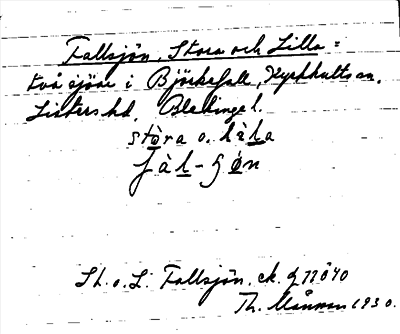 Fallsjön, Stora och Lilla =
två sjöar i Björkefall, Kyrkhults sn.
Listers hd, Blekinge l.
stòra o. lìla
fàl-ʃø̀n
St. o. L. Fallsjön, ek.
Th. Månsson 1930.